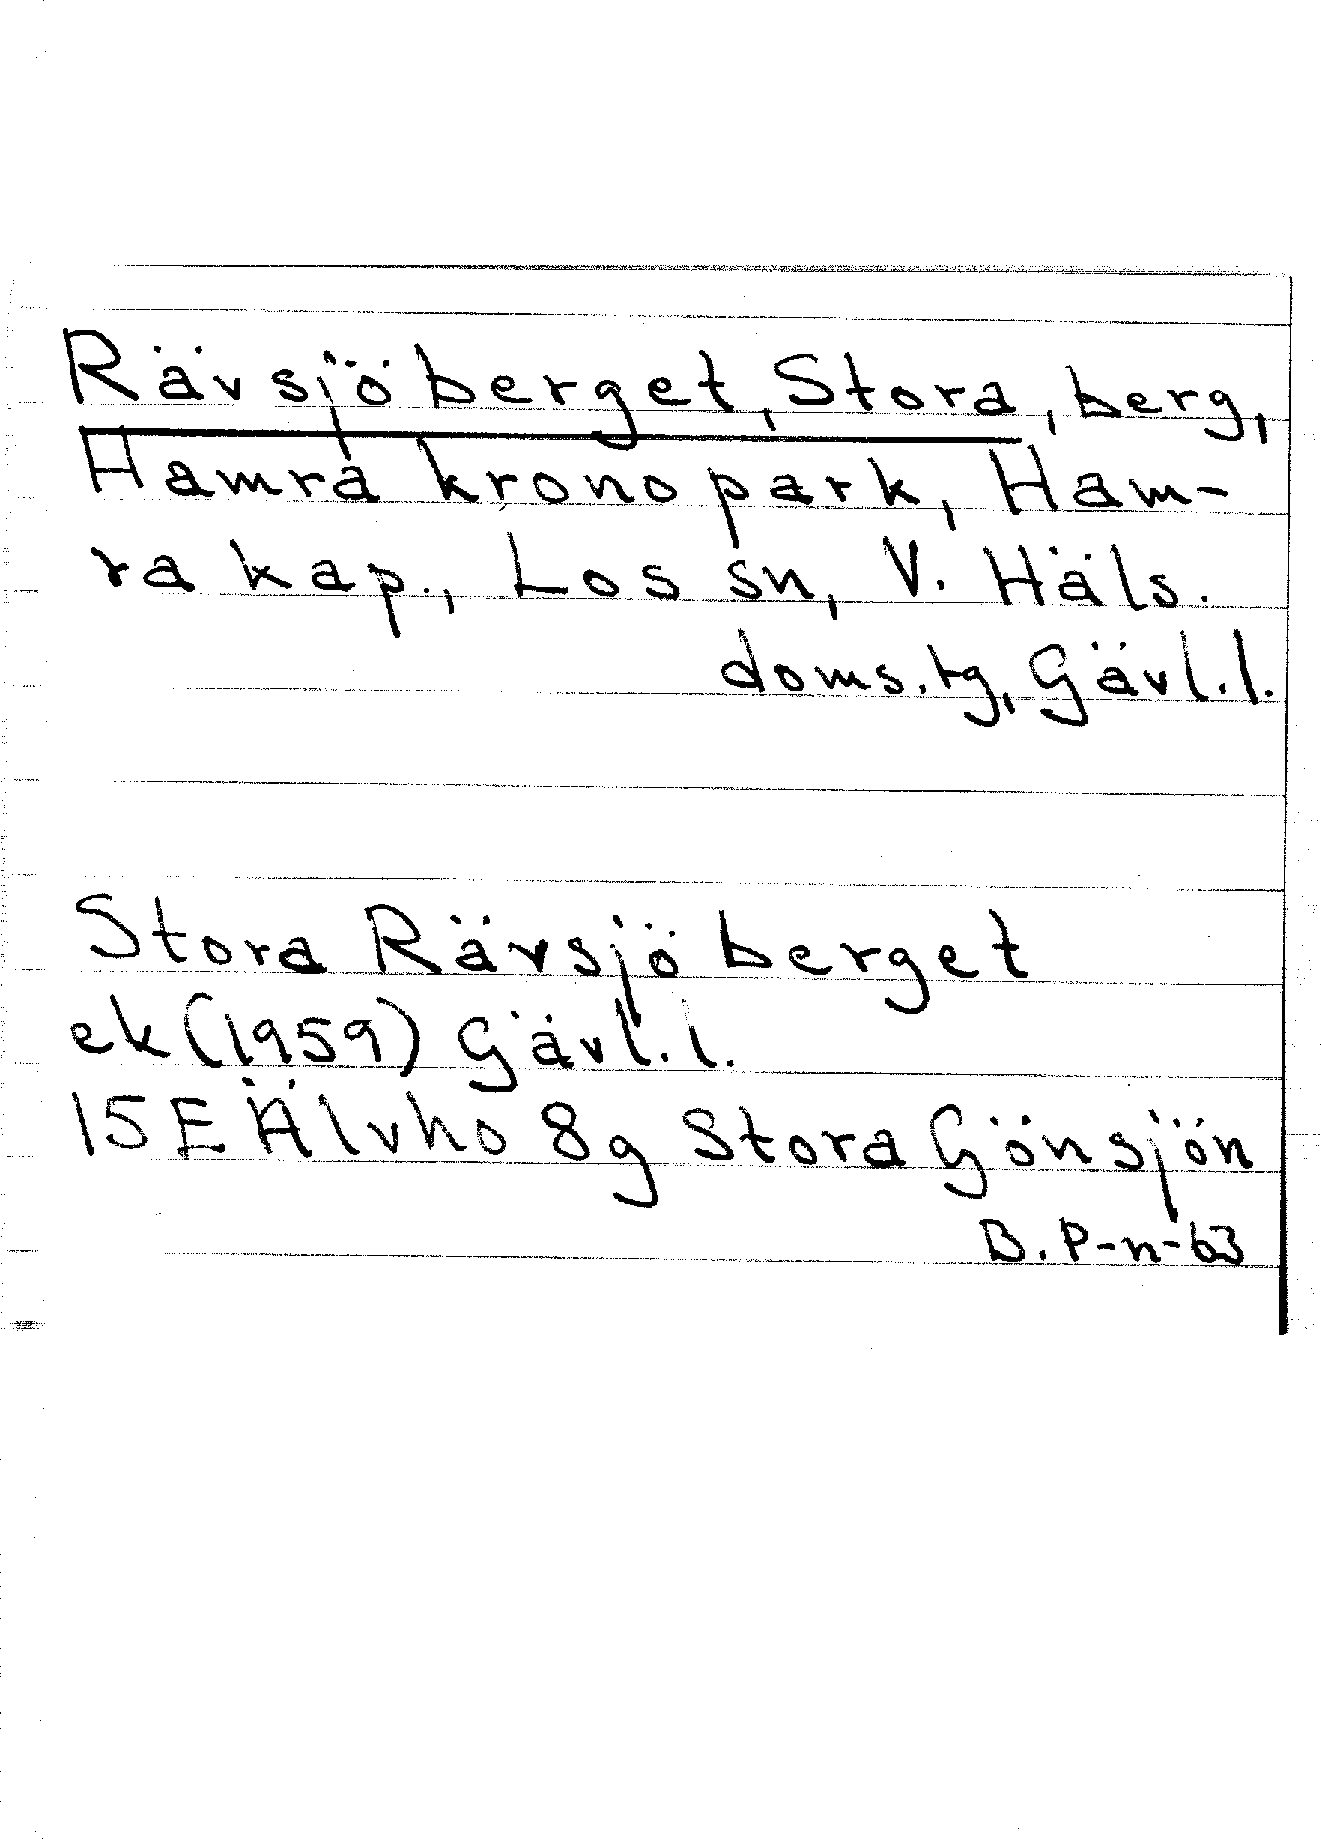 Rävsjöberget, Stora, berg,
Hamra kronopark, Ham-
ra kap., Los sn, V. Häls.
doms.tg, Gävl.l.
Stora Rävsjöberget
ek (1959) Gävl.l.
15E Älvho 8g Stora Gönsjön
B. P-n-63